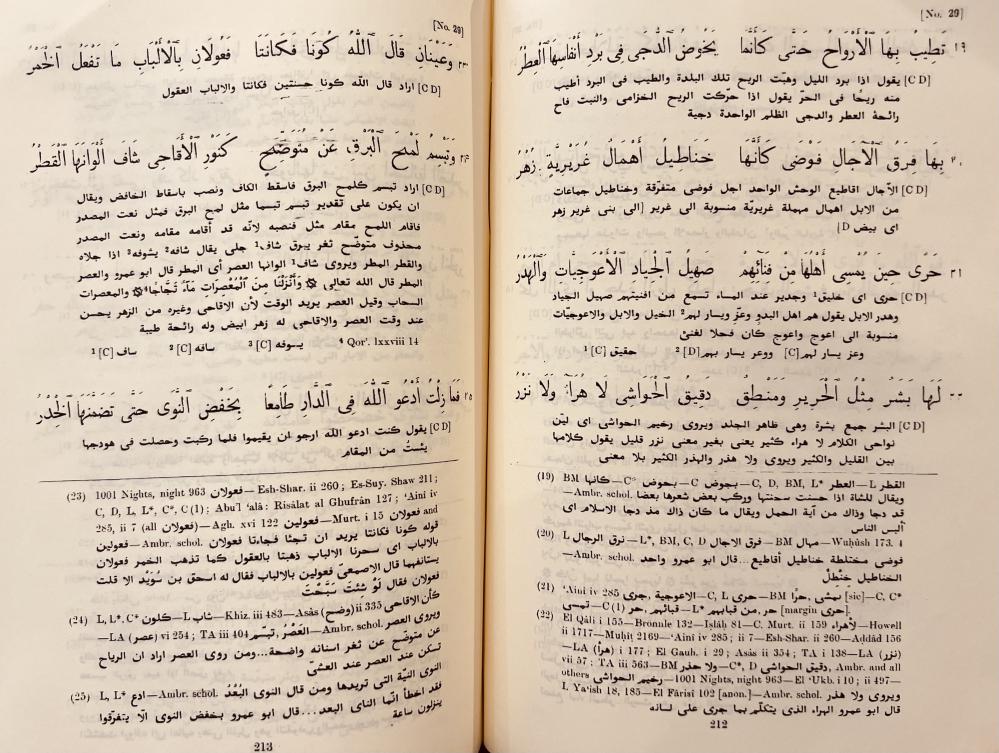 [No. 29]
١٩ تَطِيبُ بِهَا ٱلْأَرْوَاحُ حَتَّى كَأَنَّمَا يَخُوضُ ٱلدُّجَى فِى بَرْدِ أَنْفَاسِهَا ٱلْعِطْرُ
[C D] يقول اذا برد الليل وهبّت الريح تلك البلدة والطيب فى البرد أطيب
منه ريحًا فى الحرّ يقول اذا حرّكت الريح الخزامى والنبت فاح
رائحة العطر والدجى الظلم الواحدة دجية
٢٠ بِهَا فِرَقُ ٱلْآجَالِ فَوْضَى كَأَنَّهَا خَنَاطِيلُ أَهْمَالٌ غُرَيْرِيَّةٌ زُهْرُ
[C D] الآجال اقاطيع الوحش الواحد اجل فوضى متفرّقة وخناطيل جماعات
من الابل اهمال مهملة غريريّة منسوبة الى غرير [الى بنى غرير زهر
اى بيض D]
٢١ حَرًى حِينَ يُمْسِى أَهْلُهَا مِنْ فِنَائِهِمْ صَهِيلُ ٱلْجِيَادِ ٱلْأَعْوَجِيَّاتِ وَٱلْهَدْرُ
[C D] حرى اى خليق¹ وجدير عند المساء تسمع من افنيتهم صهيل الجياد
وهدر الابل يقول هم اهل البدو وعزّ ويسار لهم² الخيل والابل والاعوجيّات
منسوبة الى اعوج واعوج كان فحلا لغنىّ
¹ [C] حقيق ² [D] وعر يسار بهم [C] وعز يسار لهم
٢٢ لَهَا بَشَرٌ مِثْلُ ٱلْحَرِيرِ وَمَنْطِقٌ دَقِيقُ ٱلْحَوَاشِى لَا هُرَاءٌ وَلَا نَزْرُ
[C D] البشر جمع بشرة وهى ظاهر الجلد ويروى رخيم الحواشى اى ليّن
نواحى الكلام لا هراء كثير يعنى بغير معنى نزر قليل يقول كلامها
بين القليل والكثير ويروى ولا هذر والهذر الكثير بلا معنى
(19) BM كانها—C° بجوض—C بحوض—C, D, BM, L* العطر—L القطر
—Ambr. schol. ويقال للشاة اذا حسنت سحنتها وركب بعض شعرها بعضا
قد دجا وذاك من آية الحمل ويقال ما كان ذاك مذ دجا الاسلام اى
ألبس الناس
(20) L فرق الرجال—L*, BM, C, D فرق الاجال—BM مهال—Wuḥûsh 173. 4
—Ambr. schol. فوضى مختلطة خناطيل أقاطيع...قال ابو عمرو واحد
الخناطيل خنطل
(21) 'Aini iv 285 الاعوجية ,جرى—C, L حرى—BM حرّا ,نمشى [sic]—C, C*
تمسى—C (1) حر ,قبائهم—L* حر من قبابهم [margin حرى].
(22) El Qâli i 155—Bronnle 132—Iṣlâḥ 81—C. Murt. ii 159 لأهراء—Howell
ii 1717—Muḥiṭ 2169—'Aini iv 285; ii 7—Esh-Shar. ii 260—Aḍdâd 156
—LA (هرأ) i 177; El Gauh. i 29; Asâs ii 354; TA i 138—LA (نزر)
vii 57; TA iii 563—BM ولا حذر—C*, D دقيق الحواشى, Ambr. and all
others رخيم الحواشى—1001 Nights, night 963—El 'Ukb. i 10; ii 497—
I. Ya'ish 18, 185—El Fârisi 102 [anon.]—Ambr. schol. ويروى ولا هذر
قال ابو عمرو الهراء الذى يتكلّم بما جرى على لسانه
212
[No. 29]
٢٣ وَعَيْنَانِ قَالَ ٱللّٰهُ كُونَا فَكَانَتَا فَعُولَانِ بِٱلْأَلْبَابِ مَا تَفْعَلُ ٱلْخَمْرُ
[C D] اراد قال الله كونا حسنتين فكانتا والالباب العقول
٢٤ وَتَبْسِمُ لَمْحَ ٱلْبَرْقِ عَنْ مُتَوَضِّحٍ كَنَوْرِ ٱلْأَقَاحِى شَافَ أَلْوَانَهَا ٱلْقَطْرُ
[C D] اراد تبسم كلمح البرق فاسقط الكاف ونصب باسقاط الخافض ويقال
ان يكون على تقدير تبسم تبسما مثل لمح البرق فمثل نعت المصدر
فاقام اللمح مقام مثل فنصبه لانّه قد أقامه مقامه ونعت المصدر
محذوف متوضّح ثغر يبرق شاف¹ جلى يقال شافه² يشوفه³ اذا جلاه
والقطر المطر ويروى شاف¹ الوانها العصر أى المطر قال ابو عمرو والعصر
المطر قال الله تعالى ۞ وَأَنْزَلْنَا مِنَ ٱلْمُعْصِرَاتِ مَآءً ثَجَّاجًا⁴ ۞ والمعصرات
السحاب وقيل العصر يريد الوقت لأن الأقاحى وغيره من الزهر يحسن
عند وقت العصر والاقاحى له زهر ابيض وله رائحة طيبة
¹ [C] ساف ² [C] سافه ³ [C] يسوفه ⁴ Qor'. lxxviii 14
٢٥ فَمَا زِلْتُ أَدْعُو ٱللّٰهَ فِى ٱلدَّارِ طَامِعًا بِخَفْضِ ٱلنَّوَى حَتَّى تَضَمَّنَهَا ٱلْخِدْرُ
[C D] يقول كنت ادعو الله ارجو ان يقيموا فلما ركبت وحصلت فى هودجها
يئستُ من المقام
(23) 1001 Nights, night 963 فعولان—Esh-Shar. ii 260; Es-Suy. Shaw 211;
C, D, L, L*, C*, C (1); Abu'l 'alâ: Risâlat al Ghufrân 127; 'Aini iv
285, ii 7 (all فعولان)—Agh. xvi 122 فعولين—Murt. i 15 فعولان and
فعولين—Ambr. schol. قوله كونا فكانتا يريد ان تجئا فجاءتا فعولان
بالالباب اى سحرنا الالباب ذهبتا بالعقول كما تذهب الخمر فعولان
يستانفهما قال الاصمعىّ فعولين بالالباب فقال له اسحق بن سُوَيْد الا قلت
فعولان فقال لَوْ شِئْتَ سَبَّحْتَ
(24) L, L*, C* كلون—L شاب—Khiz. iii 483—Asâs (وضح) ii 335 كأن الأقاحى
—LA (عصر) vi 254; TA iii 404 العَصْرُ ,تبسّم—Ambr. schol. ويروى العصر
عن متوضّح عن ثغر اسنانه واضحة...ومن روى العصر اراد ان الرياح
تسكن عند العصر عند العشىّ
(25) L, L* ادع—Ambr. schol. النوى النيّة التى تريدها ومن قال النوى البُعْدُ
فقد اخطأ انّما الناى البعد...قال ابو عمرو بخفض النوى الّا يتفرّقوا
ينزلون ساعة
213